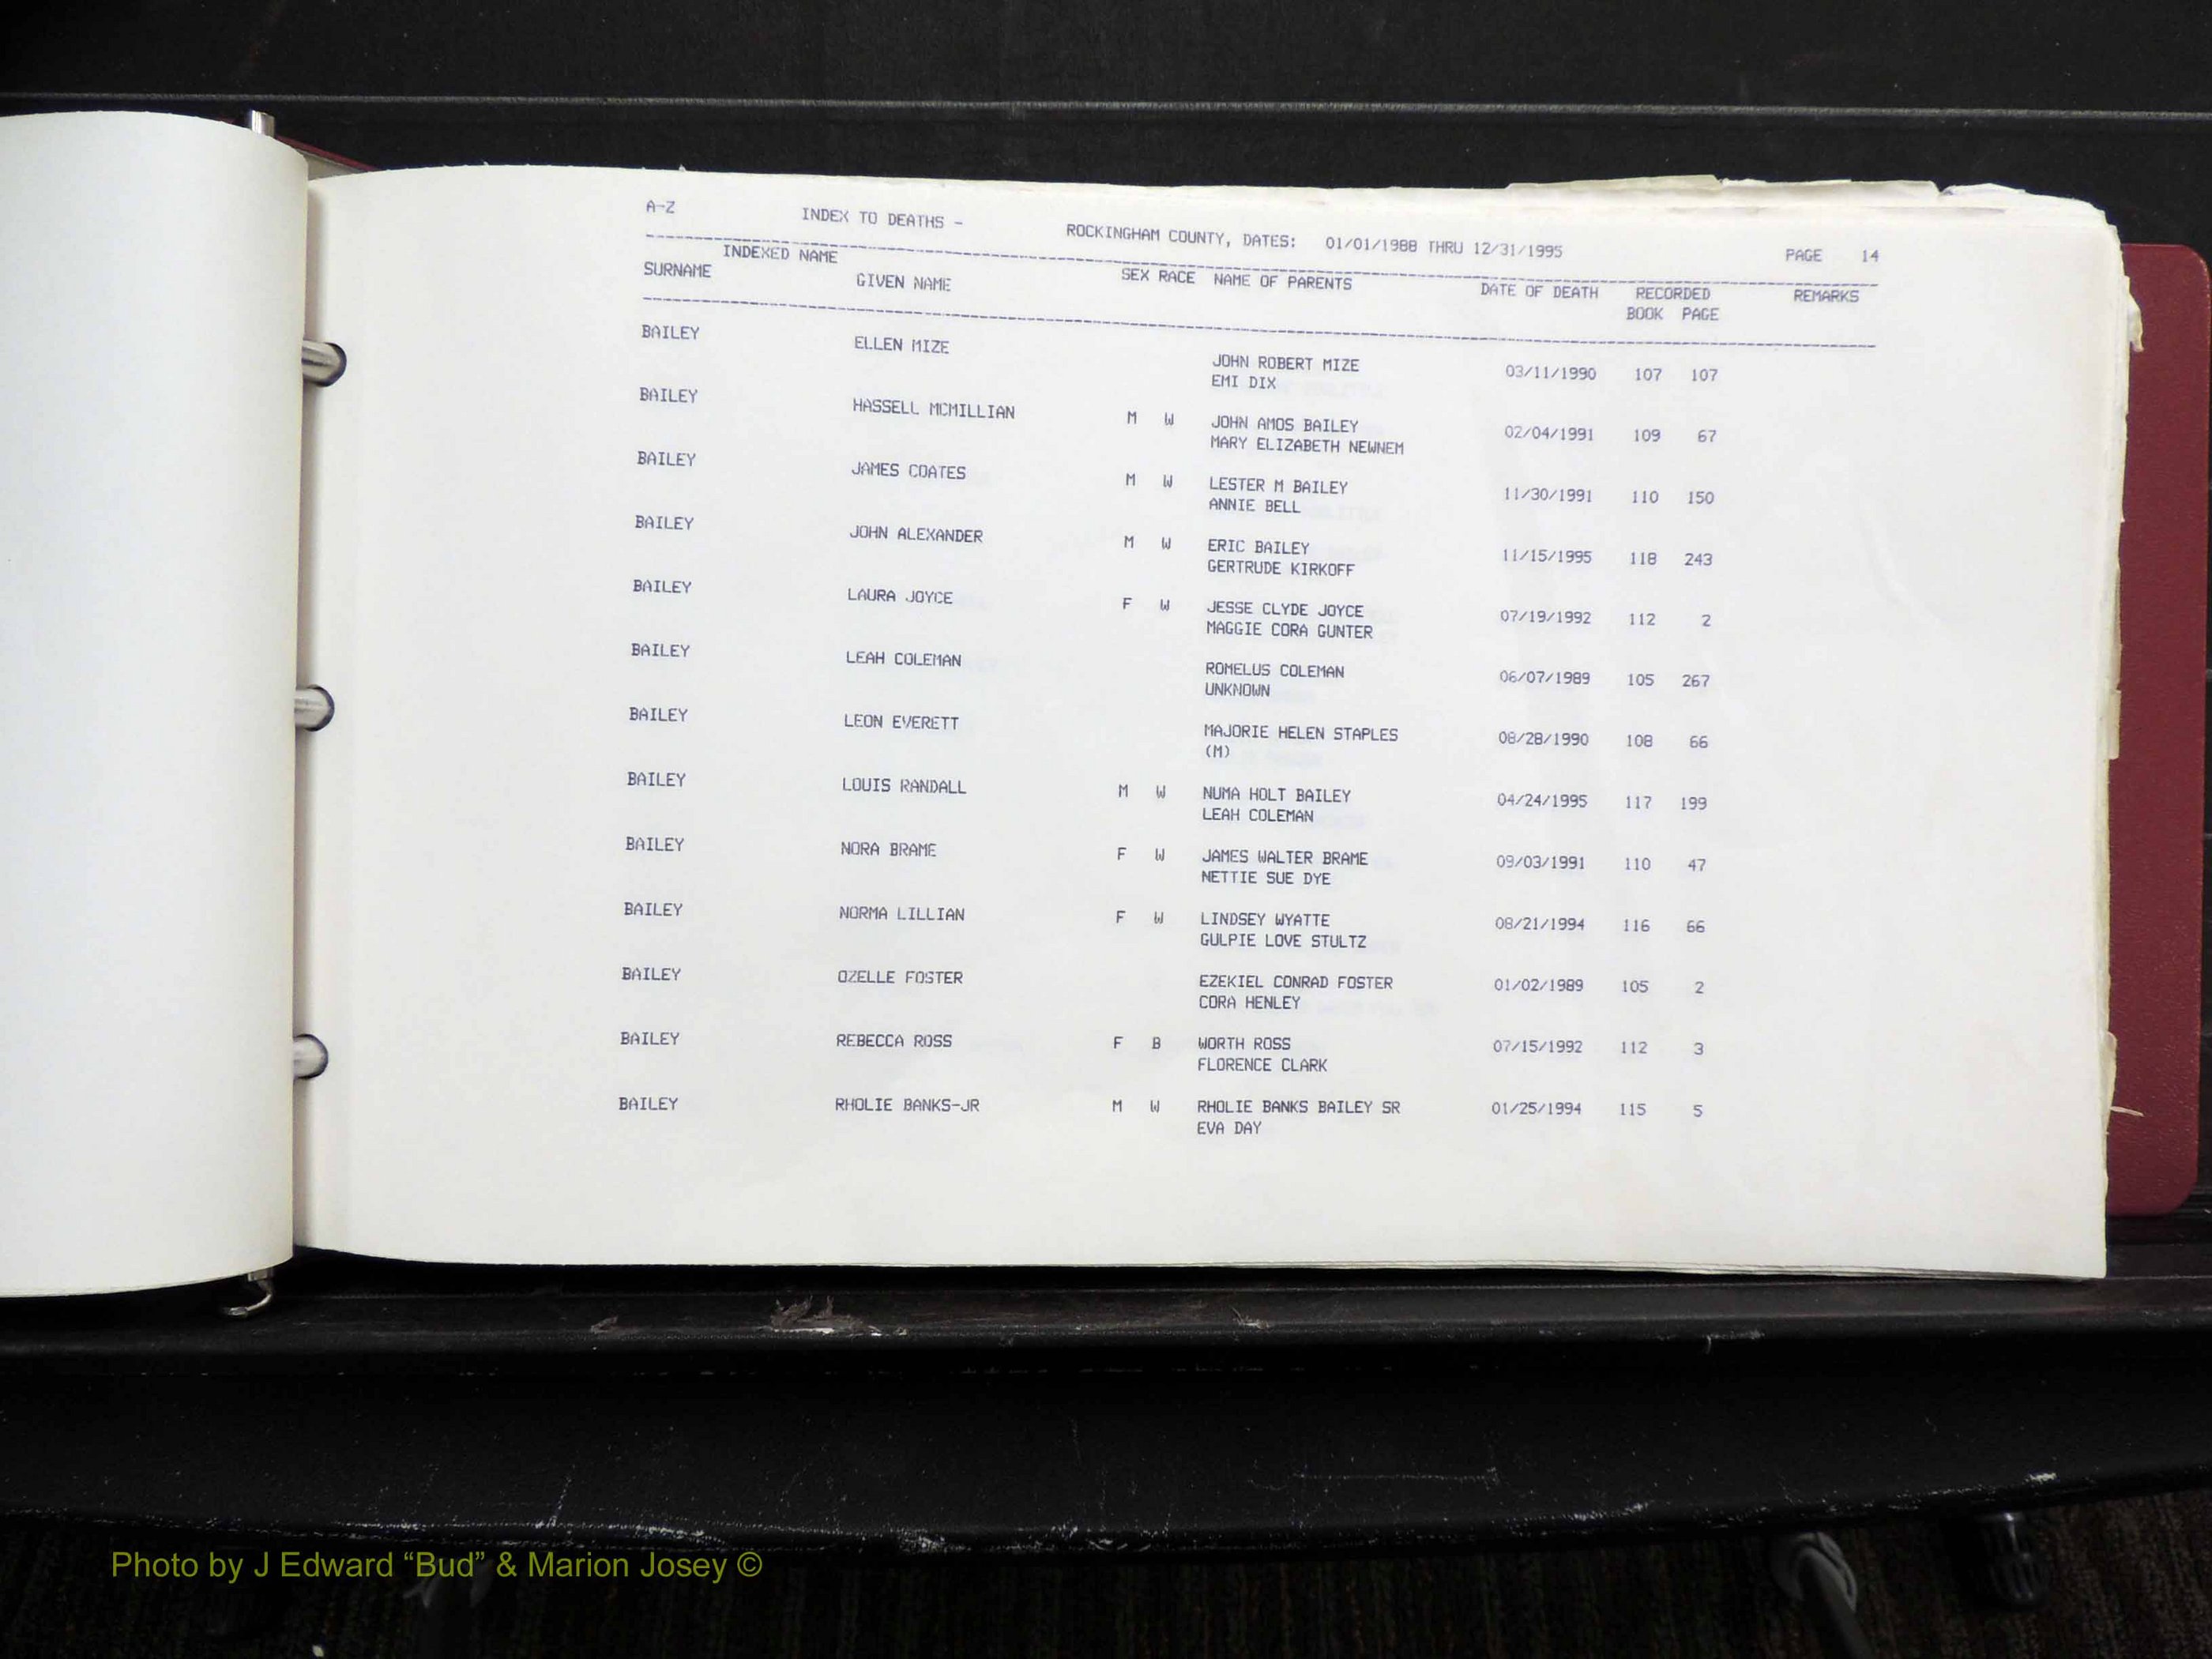 A-Z INDEX TO DEATHS - ROCKINGHAM COUNTY, DATES: 01/01/1988 THRU 12/31/1995 PAGE 14
INDEXED NAME
SURNAME GIVEN NAME SEX RACE NAME OF PARENTS DATE OF DEATH RECORDED REMARKS
BOOK PAGE
BAILEY ELLEN MIZE JOHN ROBERT MIZE 03/11/1990 107 107
EMI DIX
BAILEY HASSELL MCMILLIAN M W JOHN AMOS BAILEY 02/04/1991 109 67
MARY ELIZABETH NEWNEM
BAILEY JAMES COATES M W LESTER M BAILEY 11/30/1991 110 150
ANNIE BELL
BAILEY JOHN ALEXANDER M W ERIC BAILEY 11/15/1995 118 243
GERTRUDE KIRKOFF
BAILEY LAURA JOYCE F W JESSE CLYDE JOYCE 07/19/1992 112 2
MAGGIE CORA GUNTER
BAILEY LEAH COLEMAN ROMELUS COLEMAN 06/07/1989 105 267
UNKNOWN
BAILEY LEON EVERETT MAJORIE HELEN STAPLES 08/28/1990 108 66
(M)
BAILEY LOUIS RANDALL M W NUMA HOLT BAILEY 04/24/1995 117 199
LEAH COLEMAN
BAILEY NORA BRAME F W JAMES WALTER BRAME 09/03/1991 110 47
NETTIE SUE DYE
BAILEY NORMA LILLIAN F W LINDSEY WYATTE 08/21/1994 116 66
GULPIE LOVE STULTZ
BAILEY OZELLE FOSTER EZEKIEL CONRAD FOSTER 01/02/1989 105 2
CORA HENLEY
BAILEY REBECCA ROSS F B WORTH ROSS 07/15/1992 112 3
FLORENCE CLARK
BAILEY RHOLIE BANKS-JR M W RHOLIE BANKS BAILEY SR 01/25/1994 115 5
EVA DAY
Photo by J Edward “Bud” & Marion Josey ©